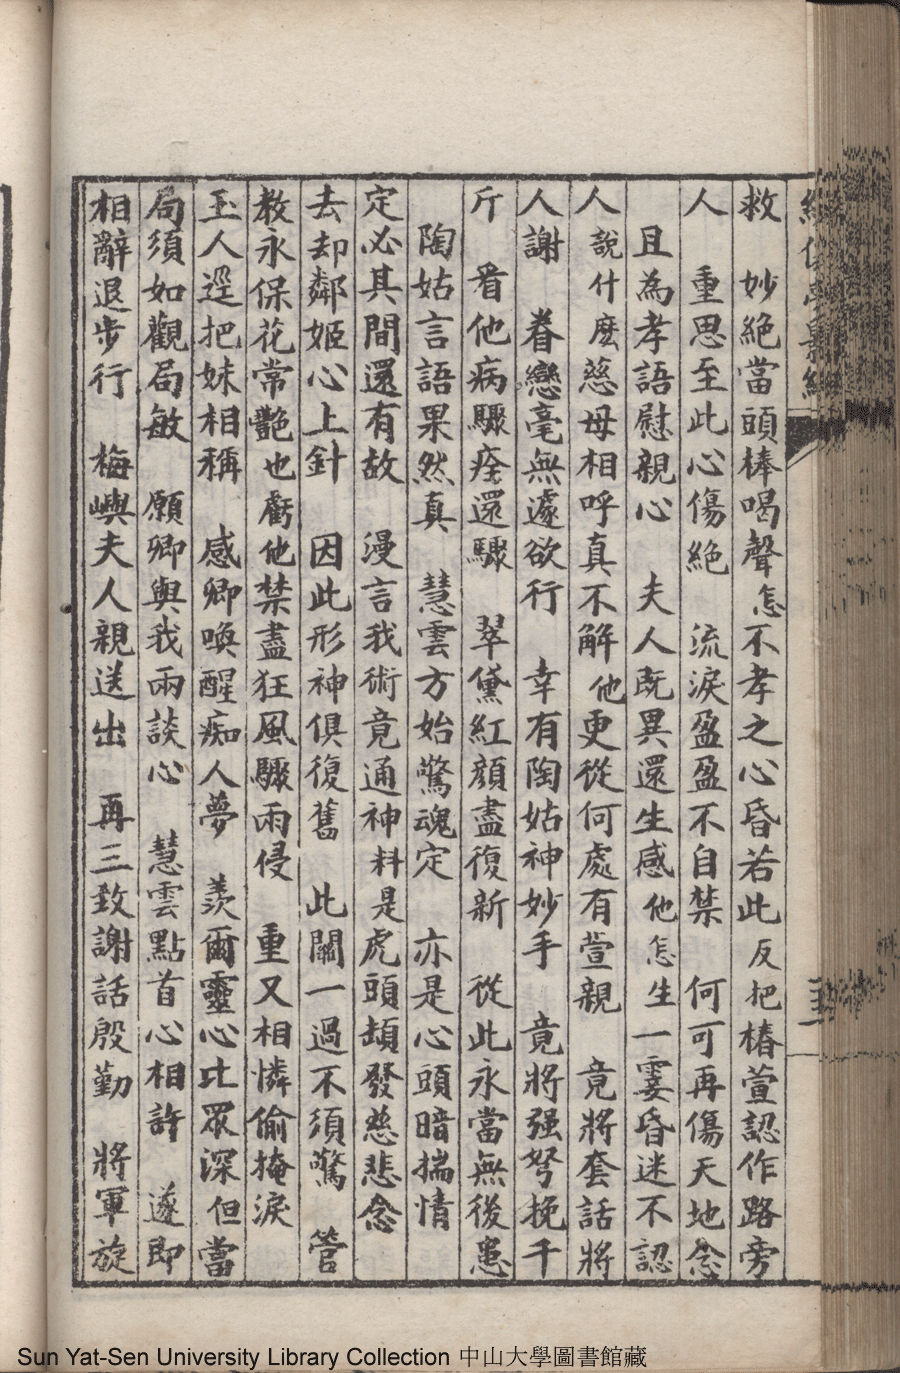 救　妙絕當頭棒喝聲怎不孝之心昏若此反把椿萱認作路旁
人　重思至此心傷絕　流淚盈盈不自禁　何可再傷天地念
且為孝語慰親心　夫人既異還生感他怎生一霎昏迷不認
人說什麽慈母相呼真不解他更從何處有萱親　竟將套話將
人謝　眷戀毫無遽欲行　幸有陶姑神妙手　竟將强弩挽千
斤　看他病驟痊還驟　翠黛紅顔盡復新　從此永當無後患
陶姑言語果然真　慧雲方始驚魂定　亦是心頭暗揣情
定必其間還有故　漫言我術竟通神料是虎頭頡發慈悲念
去却鄰姬心上針　因此形神俱復舊　此關一過不須驚　管
教永保花常艷也虧他禁盡狂風驟雨侵　重又相憐偷掩淚
玉人逕把妹相稱　感卿喚醒痴人夢　羨爾靈心比眾深但當
局須如觀局敏　願卿與我兩談心　慧雲點首心相許　遂即
相辭退步行　梅嶼夫人親送出　再三致謝話殷勤　將軍旋
Sun Yat-Sen University Library Collection 中山大學圖書館藏